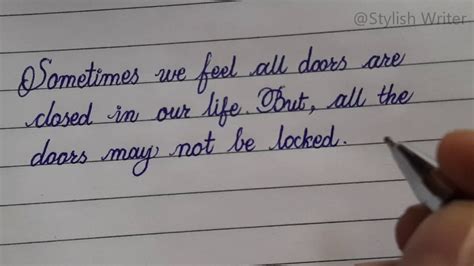 @Stylish Writer
Sometimes we feel all doors are
closed in our life. But, all the
doors may not be locked.